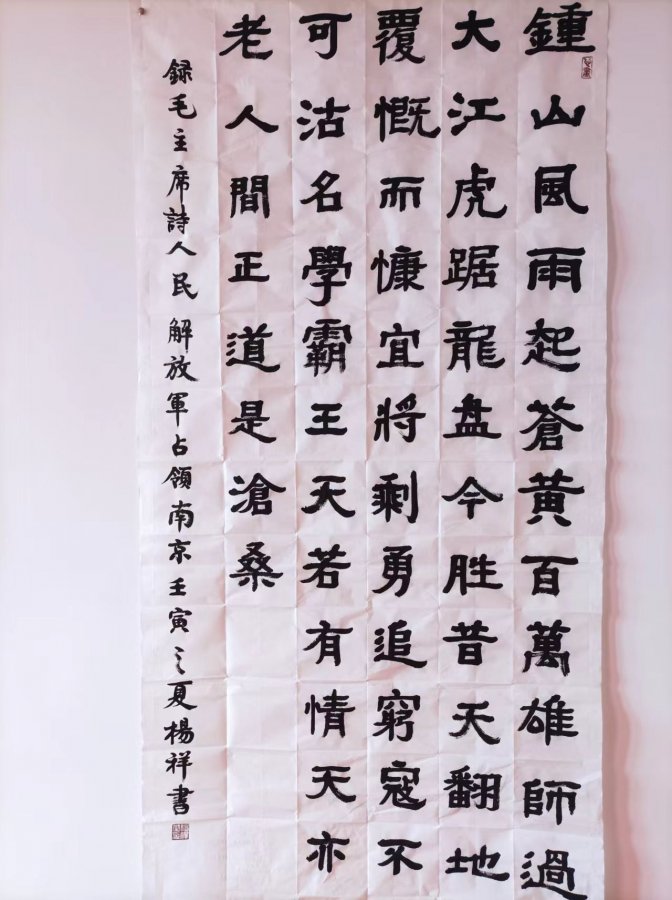 鍾山風雨起蒼黄百萬雄師過
大江虎踞龍盘今胜昔天翻地
覆慨而慷宜將剩勇追窮寇不
可沽名學霸王天若有情天亦
老人間正道是滄桑
録毛主席詩人民解放軍占領南京壬寅之夏楊祥書